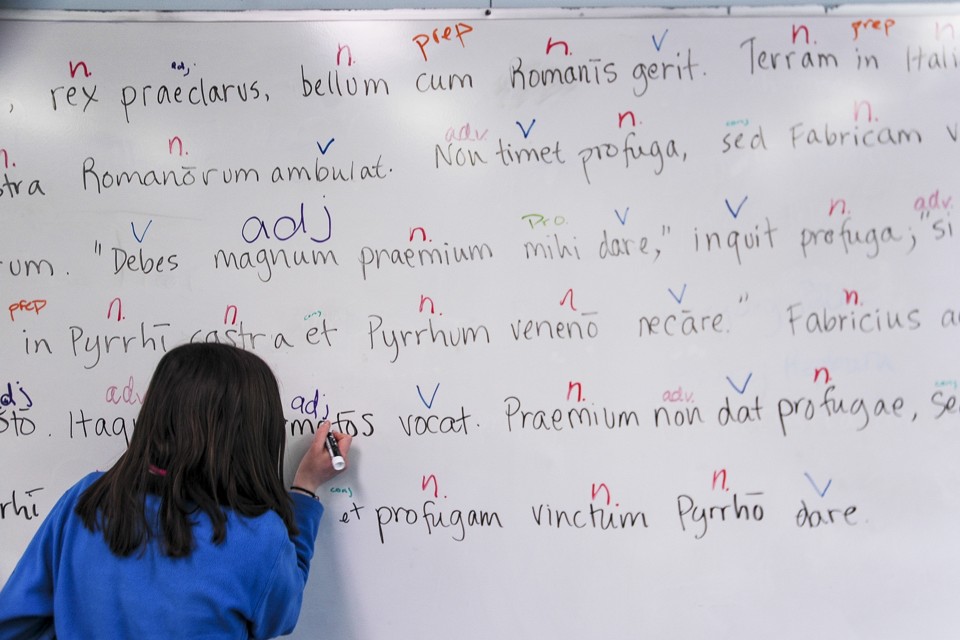 n. adj n. prep n. v n. prep n
, rex praeclarus, bellum cum Romanīs gerit. Terram in Itali
n. n. v adv. v n. conj n.
stra Romanōrum ambulat. Non timet profuga, sed Fabricam v
v adj n. pro. v v n. adv.
um. "Debes magnum praemium mihi dare," inquit profuga; "si
prep n. n. conj n. n v n.
in Pyrrhī castra et Pyrrhum venenō necāre." Fabricius a
dj adv adj v n. adv. v n. conj
stō. Itaq matōs vocat. Praemium non dat profugae, se
conj n. n. n. v
rhī et profugam vinctum Pyrrhō dare.